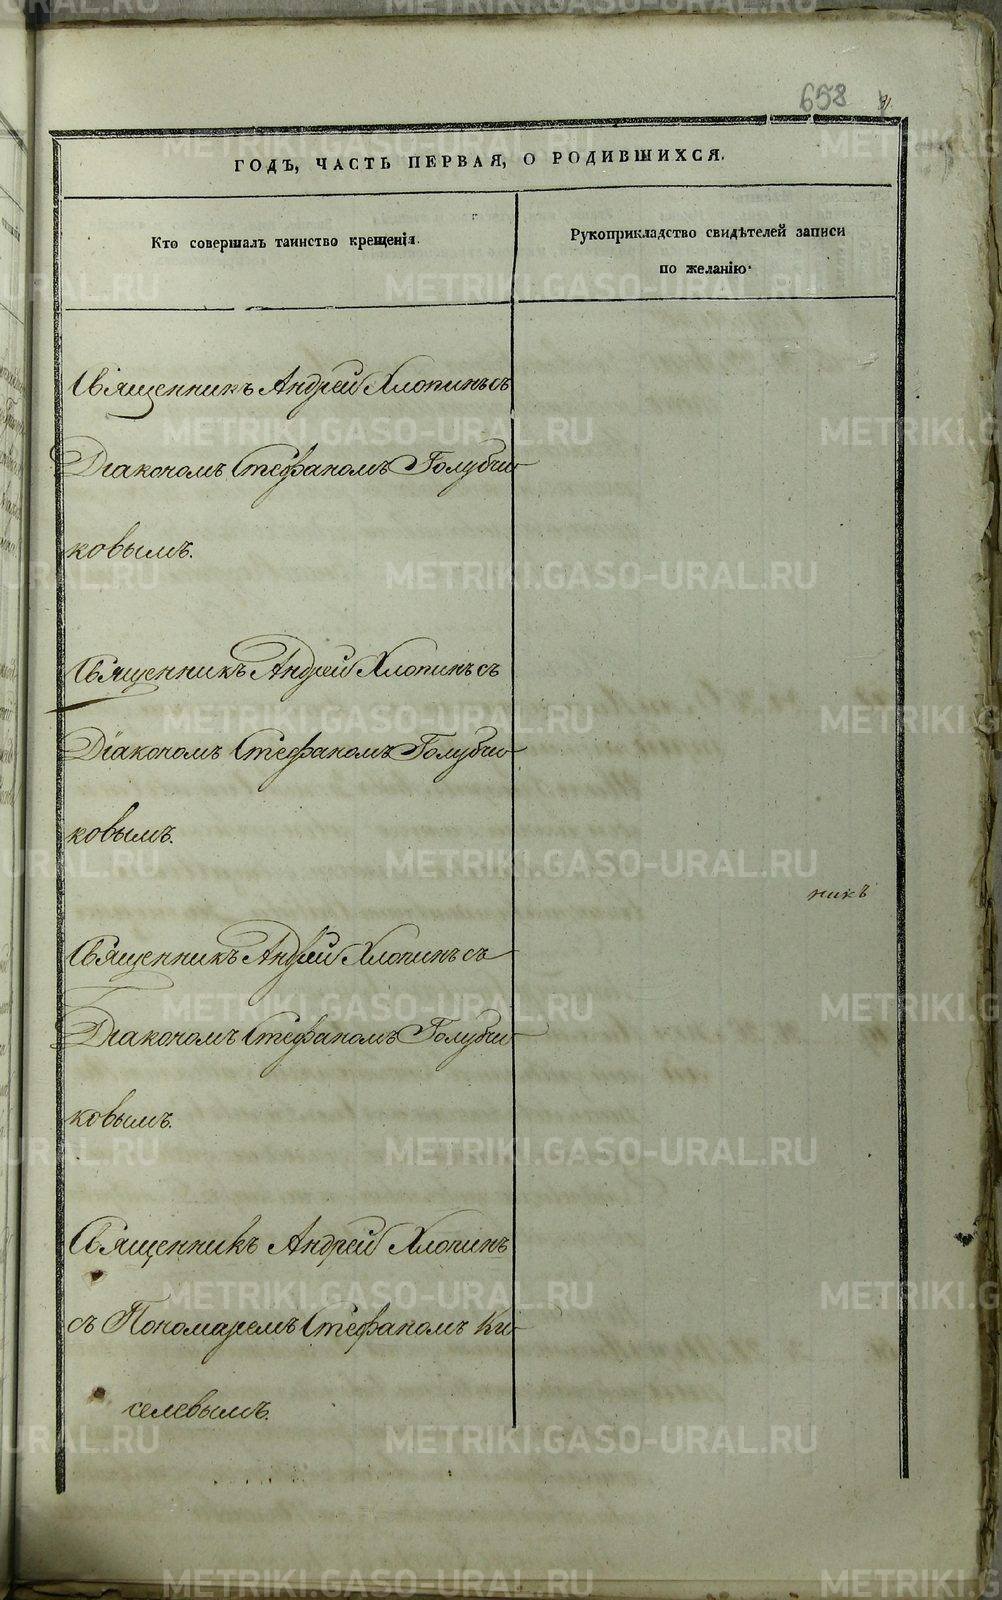 658
ГОДЪ, ЧАСТЬ ПЕРВАЯ, О РОДИВШИХСЯ.
Кто совершалъ таинство крещенія.
Рукоприкладство свидѣтелей записи
по желанію.
Священникъ Андрей Хлопинъ съ
Діакономъ Стефаномъ Голубчи-
ковымъ.
Священникъ Андрей Хлопинъ съ
Діакономъ Стефаномъ Голубчи-
ковымъ.
никъ
Священникъ Андрей Хлопинъ съ
Діакономъ Стефаномъ Голубчи-
ковымъ.
Священникъ Андрей Хлопинъ
съ Пономаремъ Стефаномъ Ки-
селевымъ.
METRIKI.GASO-URAL.RU